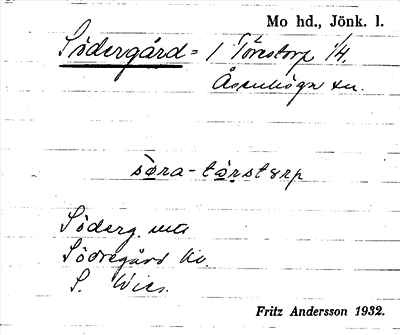 Mo hd., Jönk. l.
Södergård = 1 Törestorp 1/4.
Åsenhöga sn.
söra-törstərp
Söderg.
Södregård
S.
Fritz Andersson 1932.